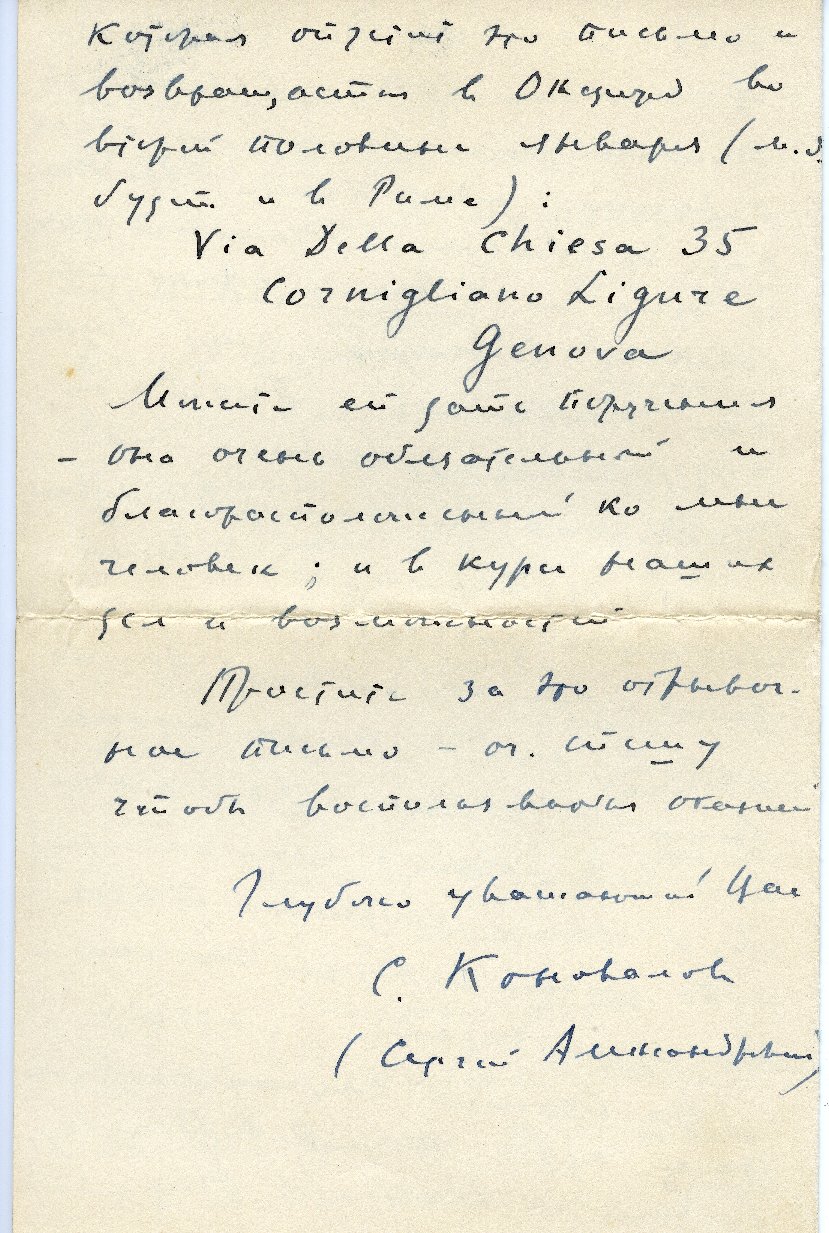 которая опустит это письмо и
возвращается в Оксфорд во
второй половине января (м.б.
будет и в Риме) :
Via Della Chiesa 35
Cornigliano Ligure
Genova
Можете ей дать поручения
– она очень обязательный и
благорасположенный ко мне
человек ; и в курсе наших
дел и возможностей
Простите за это отрывоч-
ное письмо – оч. спешу
чтобы воспользоваться оказией
Глубоко уважающий Вас
С. Коновалов
(Сергей Александрович)